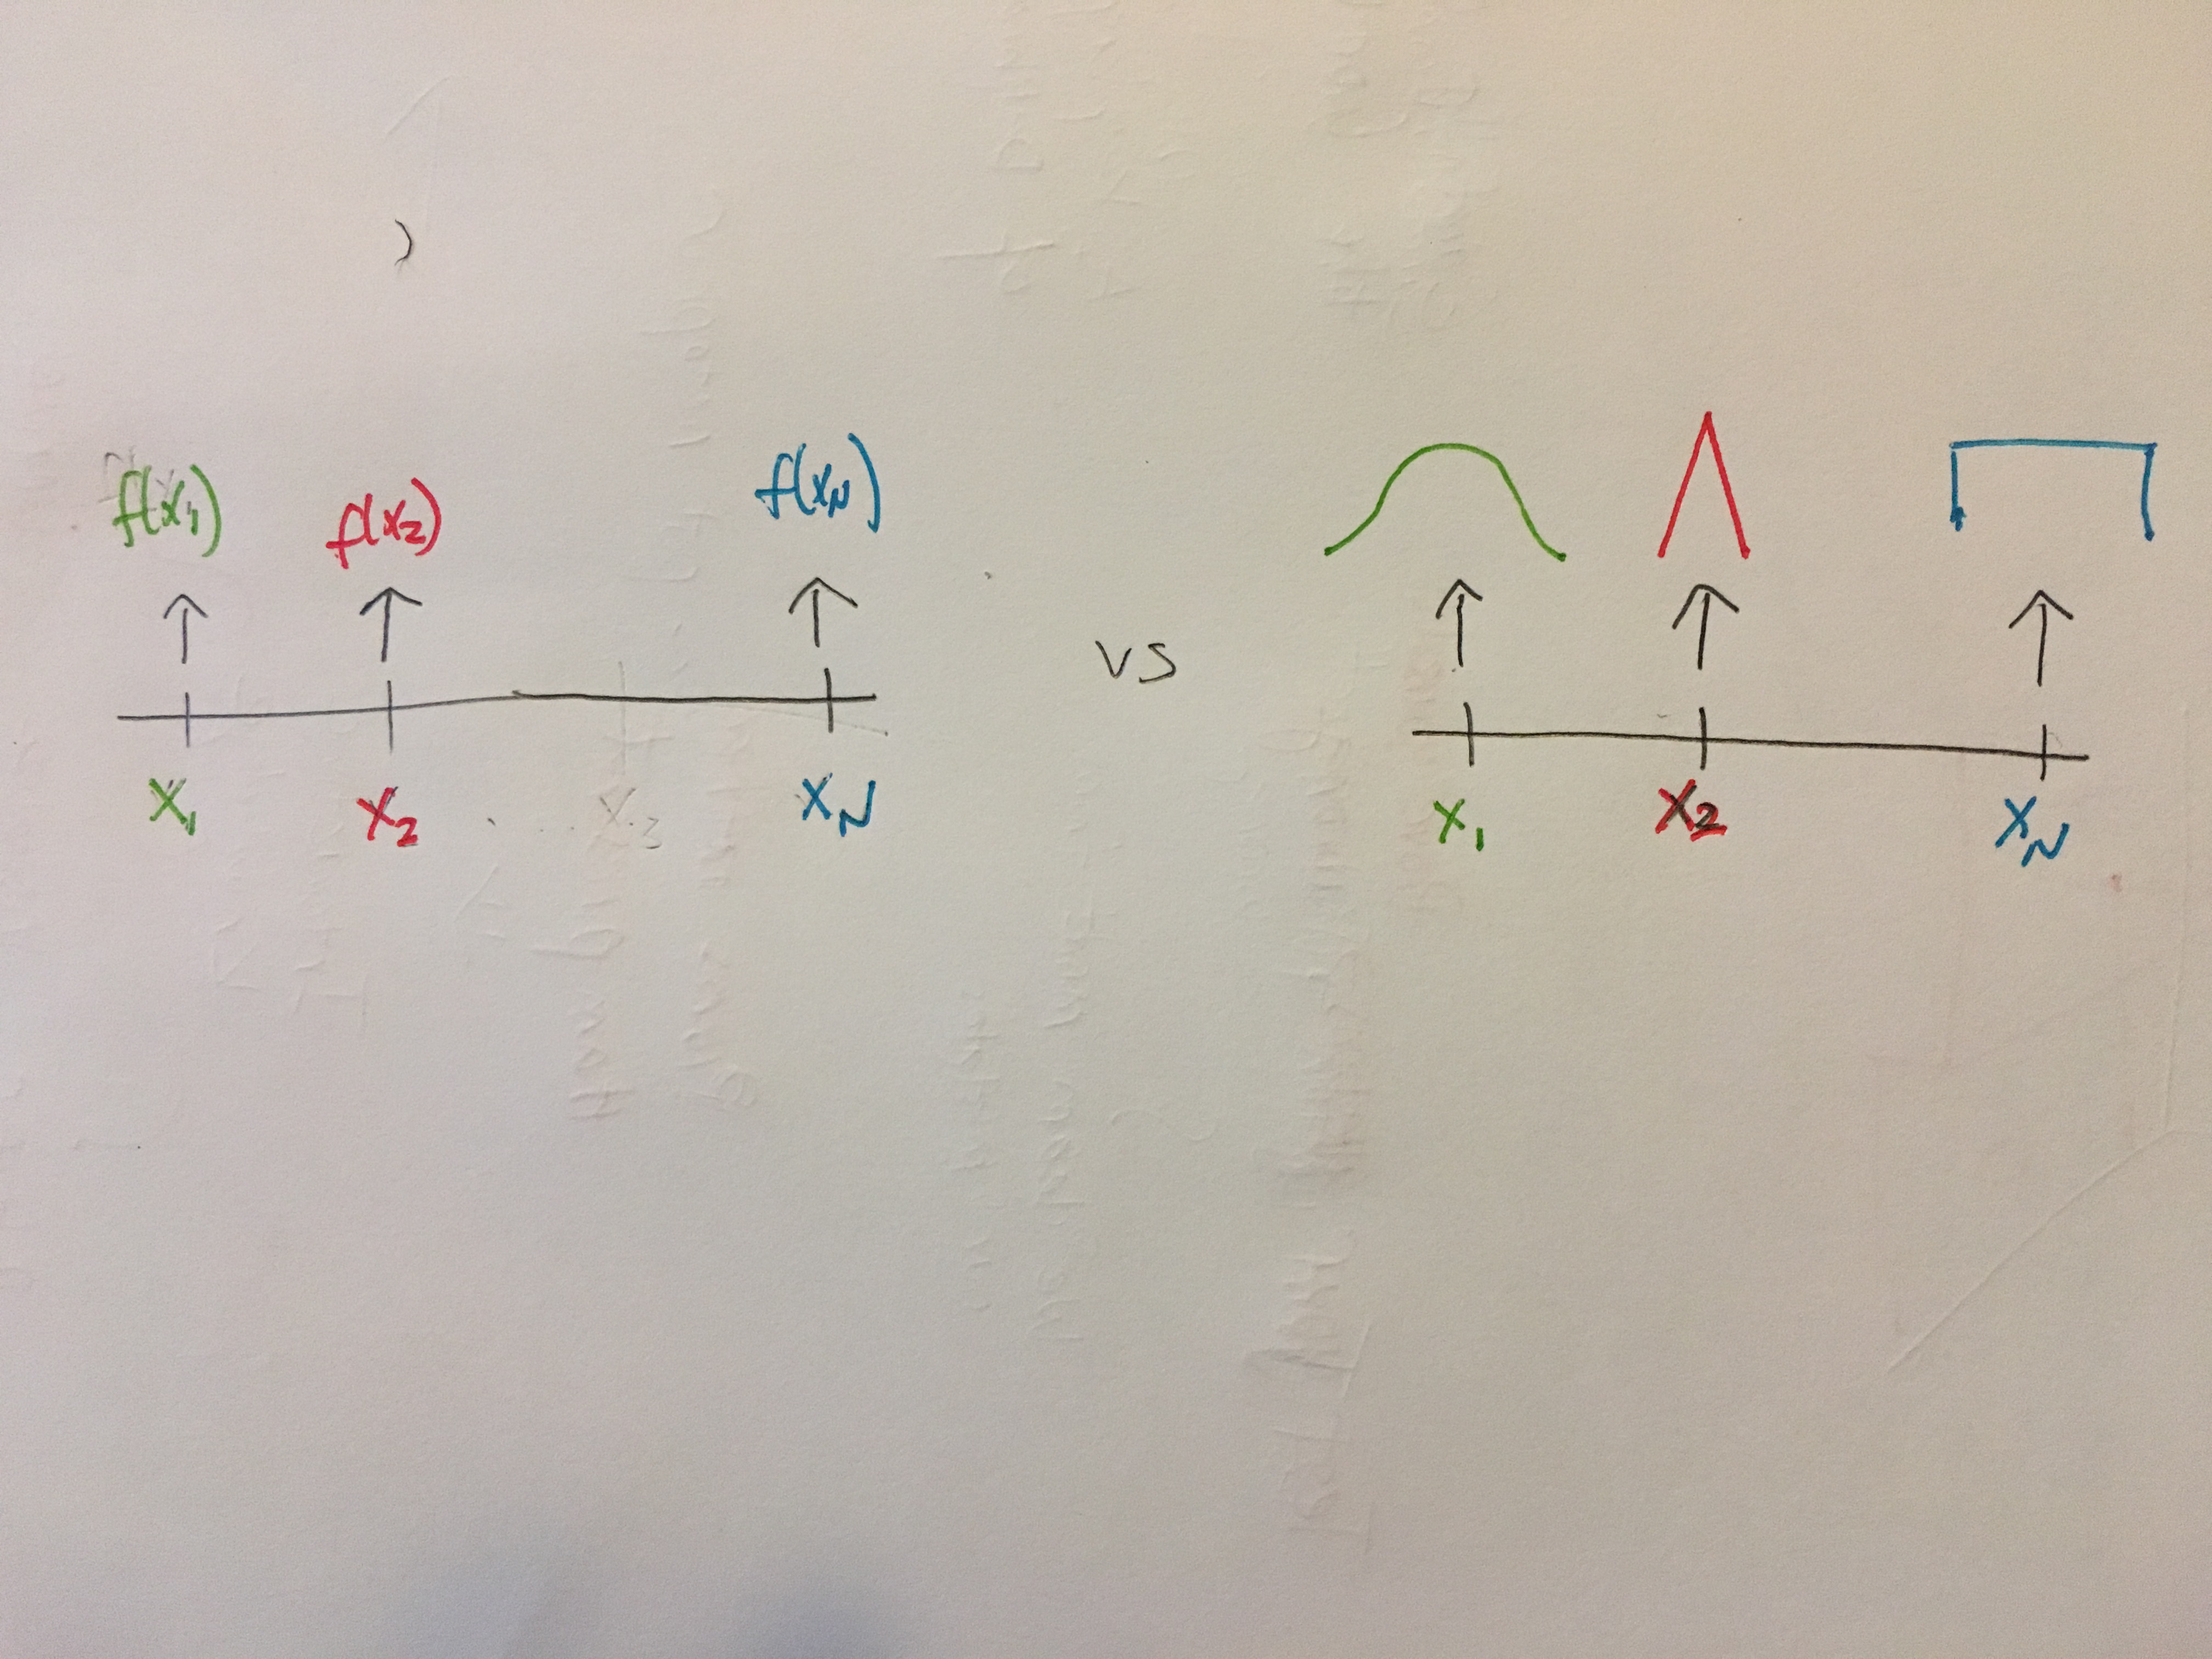 f(x₁) f(x₂) f(x_N)
vs
x₁ x₂ ... x₃ x_N
x₁ x₂ x_N